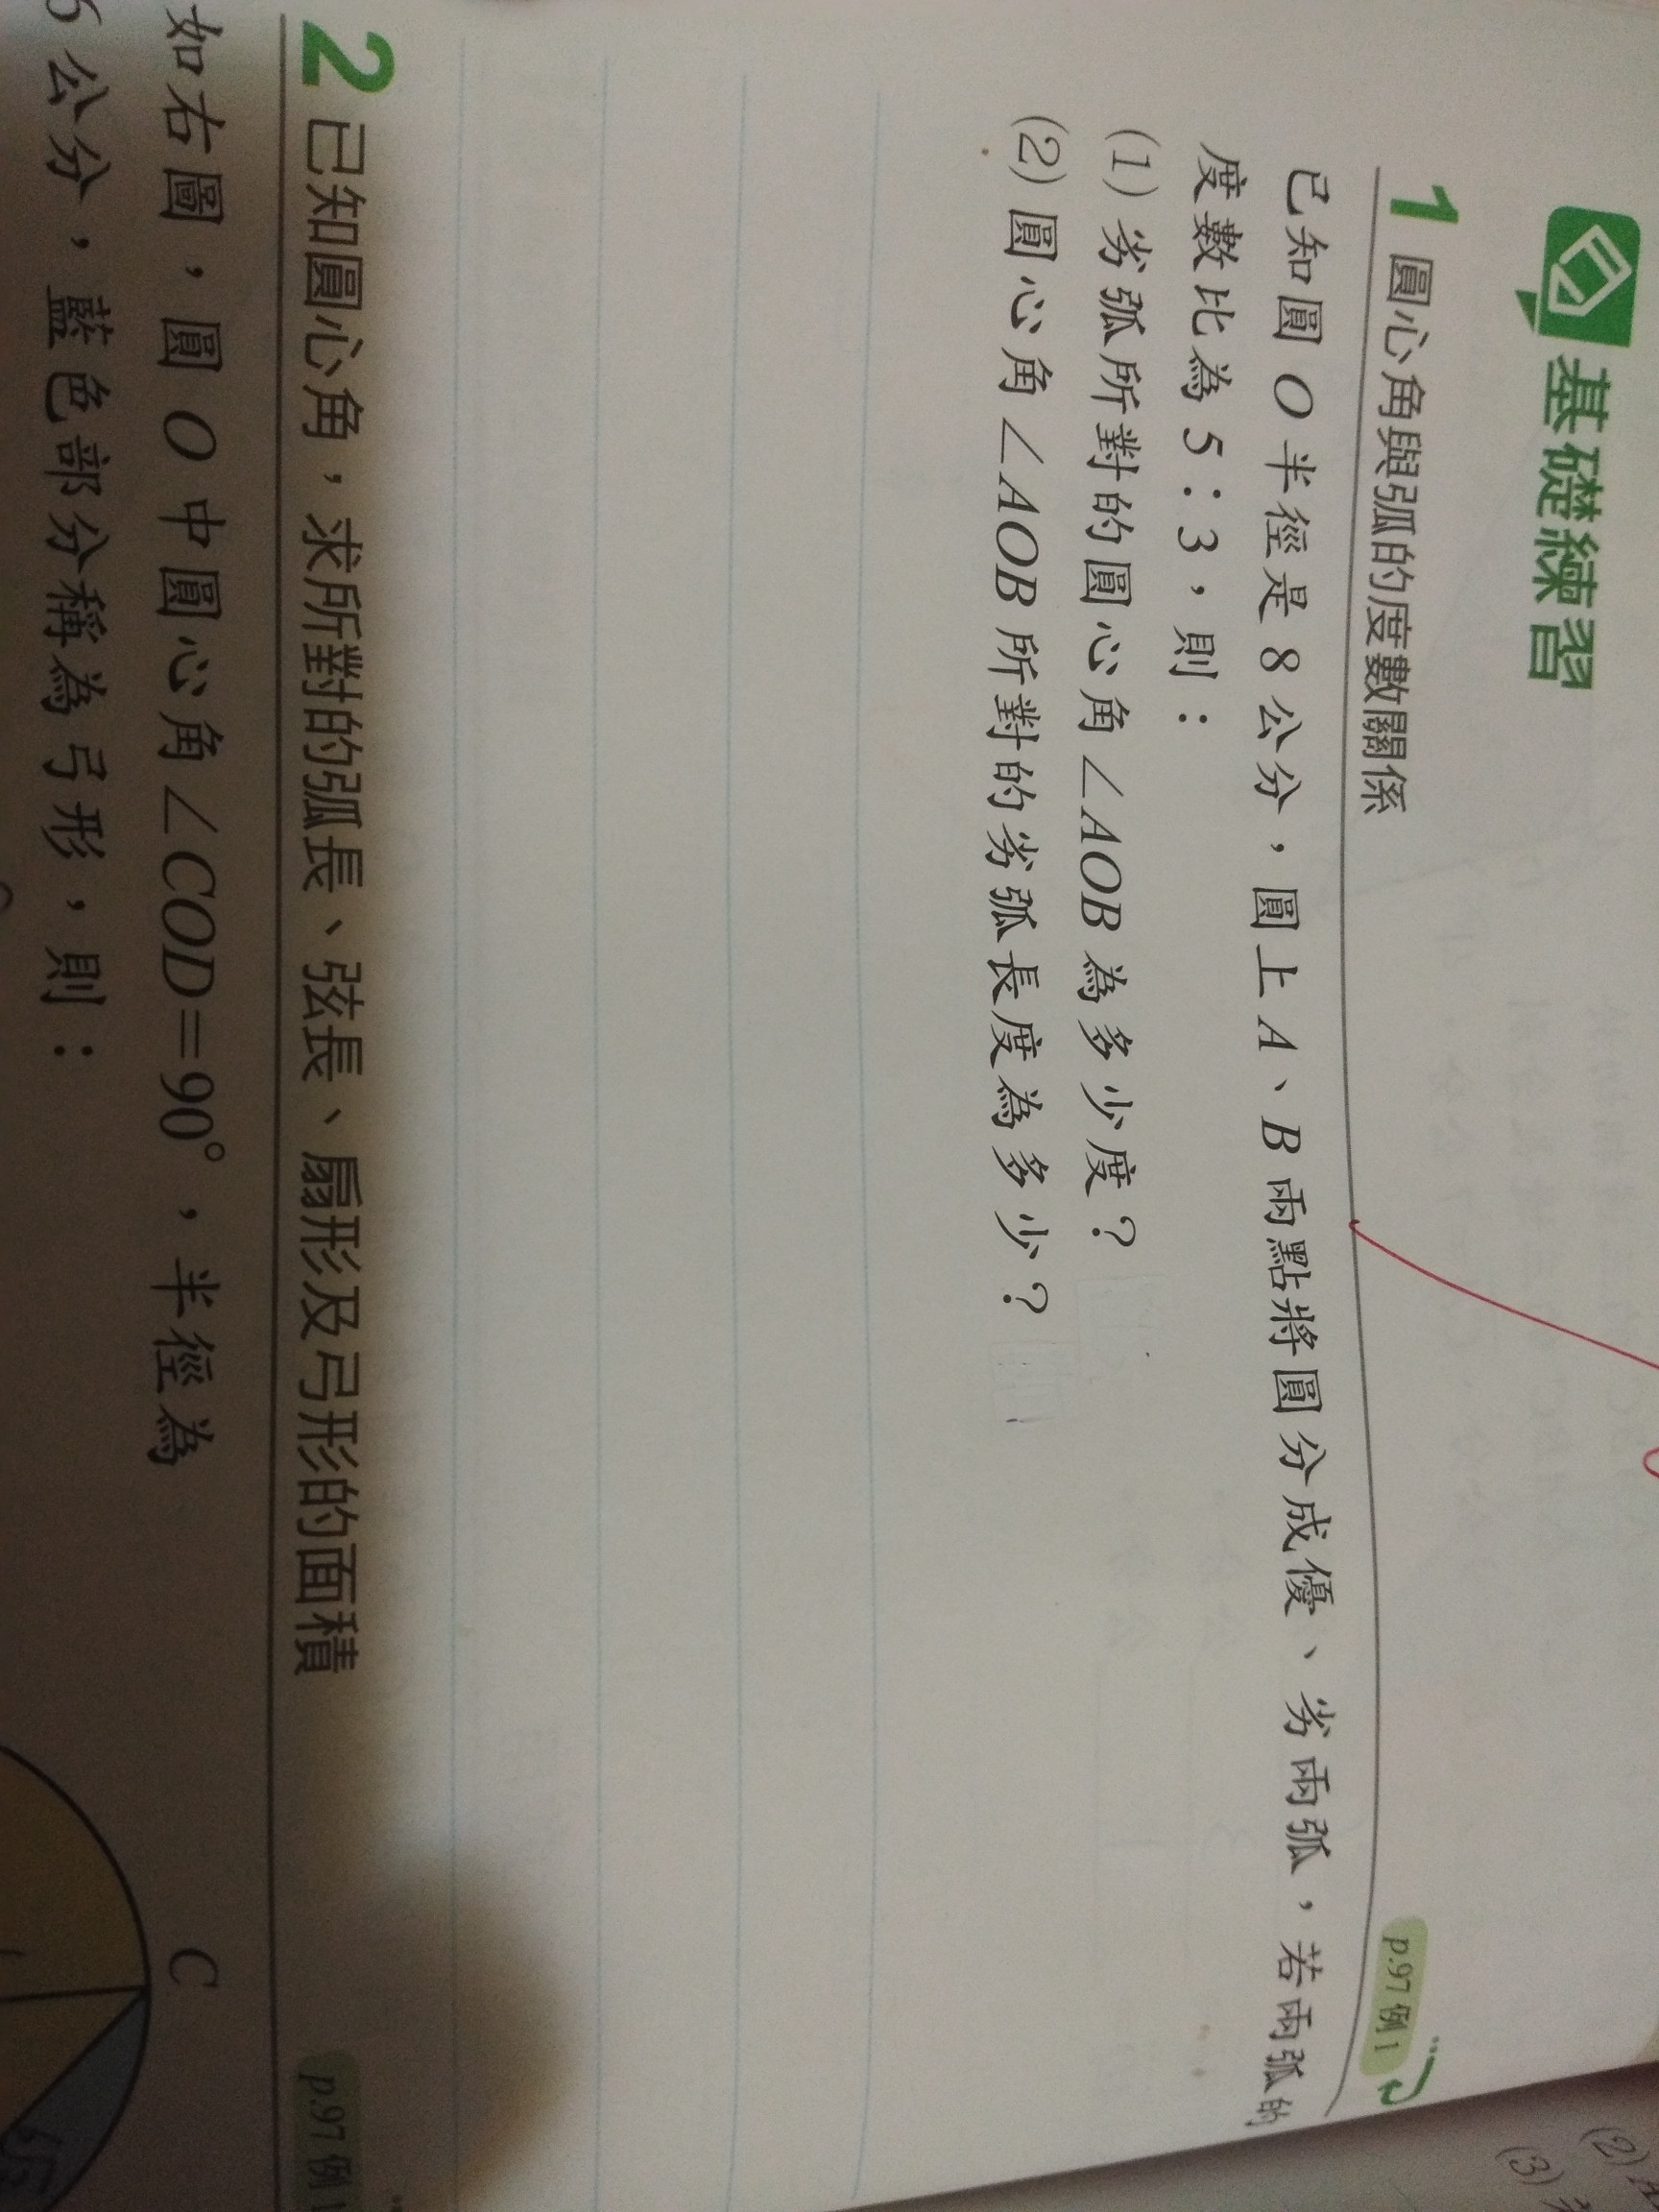 基礎練習
1 圓心角與弧的度數關係
p.97 例 1
已知圓 O 半徑是 8 公分，圓上 A、B 兩點將圓分成優、劣兩弧，若兩弧的
度數比為 5：3，則：
(1) 劣弧所對的圓心角 ∠AOB 為多少度？
(2) 圓心角 ∠AOB 所對的劣弧長度為多少？
2 已知圓心角，求所對的弧長、弦長、扇形及弓形的面積
p.97 例 1
如右圖，圓 O 中圓心角 ∠COD=90°，半徑為
公分，藍色部分稱為弓形，則：
C
(2)
(3)